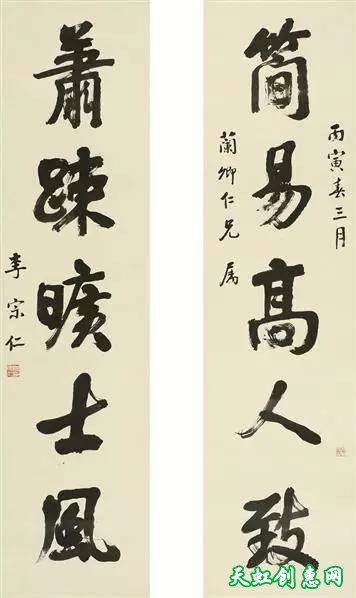 丙寅春三月
簡易高人致
蘭卿仁兄属
蕭踈曠士風
李宗仁
天虹创意网